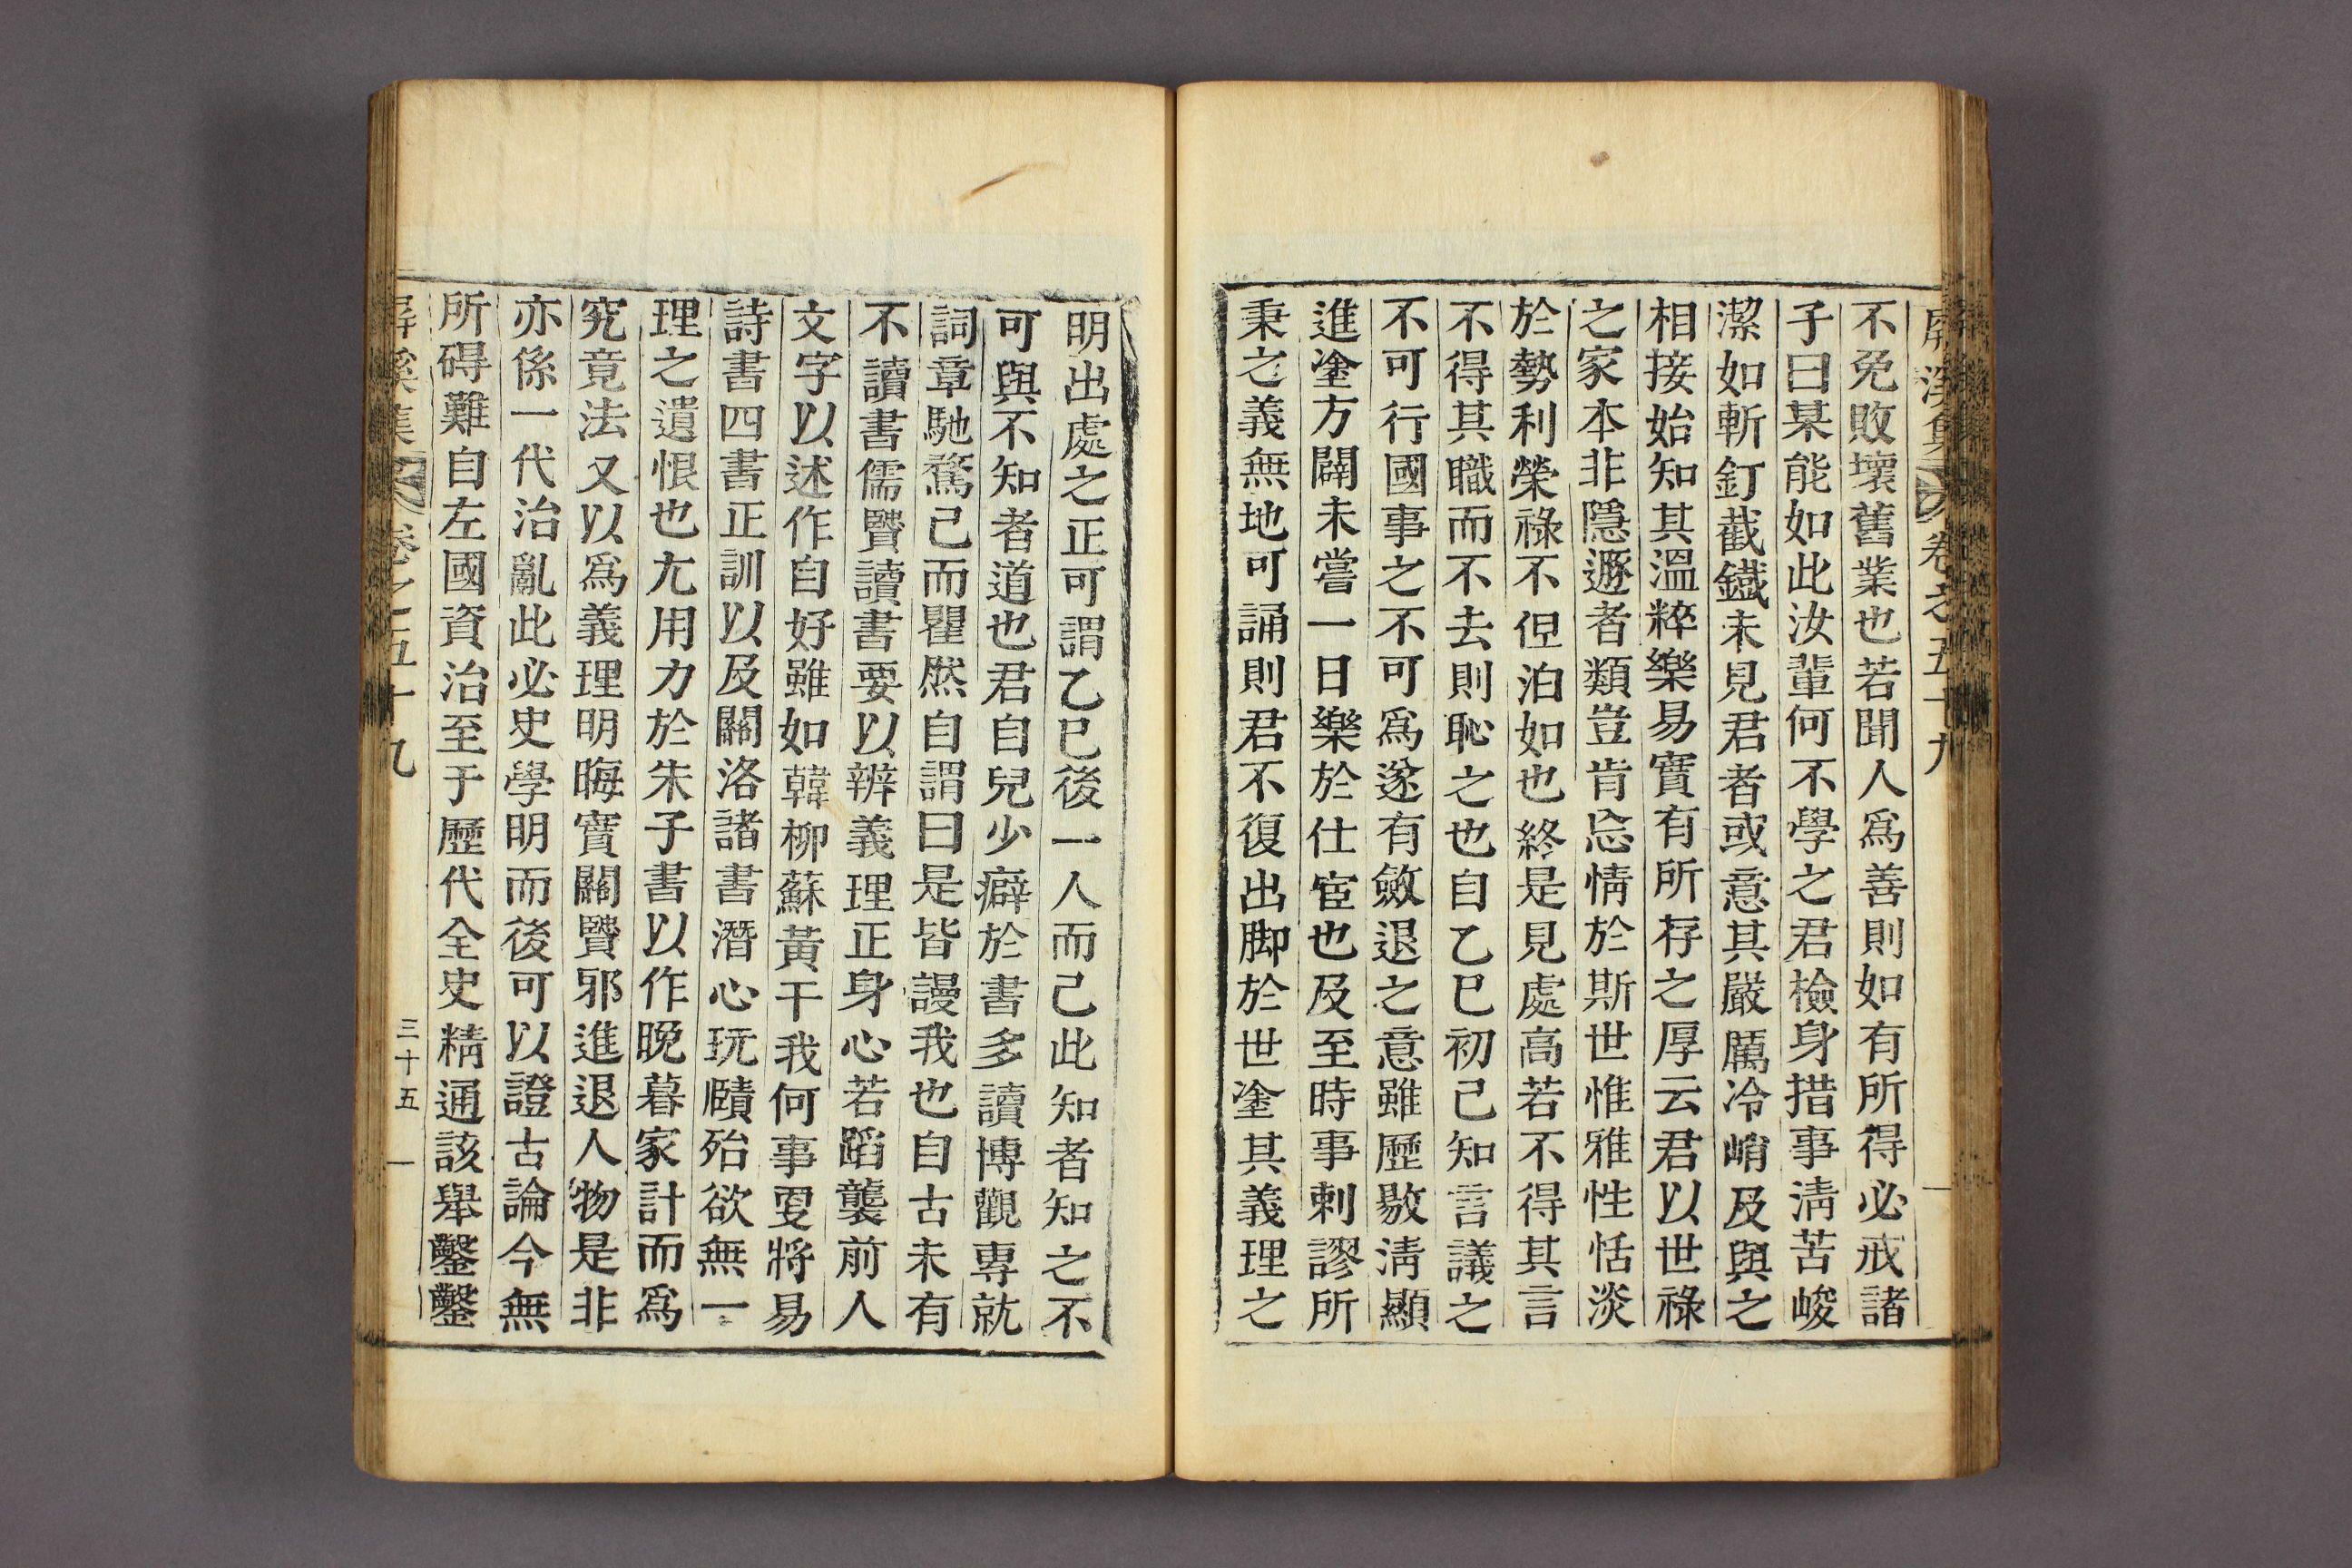 屛溪集 卷之五十九
不免敗壞舊業也若聞人爲善則如有所得必戒諸
子曰某能如此汝輩何不學之君檢身措事淸苦峻
潔如斬釘截鐵未見君者或意其嚴厲冷峭及與之
相接始知其溫粹樂易實有所存之厚云君以世祿
之家本非隱遯者類豈肯忘情於斯世惟雅性恬淡
於勢利榮祿不但泊如也終是見處高若不得其言
不得其職而不去則恥之也自乙巳初已知言議之
不可行國事之不可爲遂有斂退之意雖歷敭淸顯
進塗方闢未嘗一日樂於仕宦也及至時事剌謬所
秉之義無地可誦則君不復出脚於世塗其義理之
明出處之正可謂乙巳後一人而已此知者知之不
可與不知者道也君自兒少癖於書多讀博觀專就
詞章馳騖已而瞿然自謂曰是皆謾我也自古未有
不讀書儒賢讀書要以辨義理正身心若蹈襲前人
文字以述作自好雖如韓柳蘇黃干我何事更將易
詩書四書正訓以及關洛諸書潛心玩賾殆欲無一
理之遺恨也尤用力於朱子書以作晚暮家計而爲
究竟法又以爲義理明晦實關賢邪進退人物是非
亦係一代治亂此必史學明而後可以證古論今無
所碍難自左國資治至于歷代全史精通該擧鑿鑿
屛溪集 卷之五十九 三十五